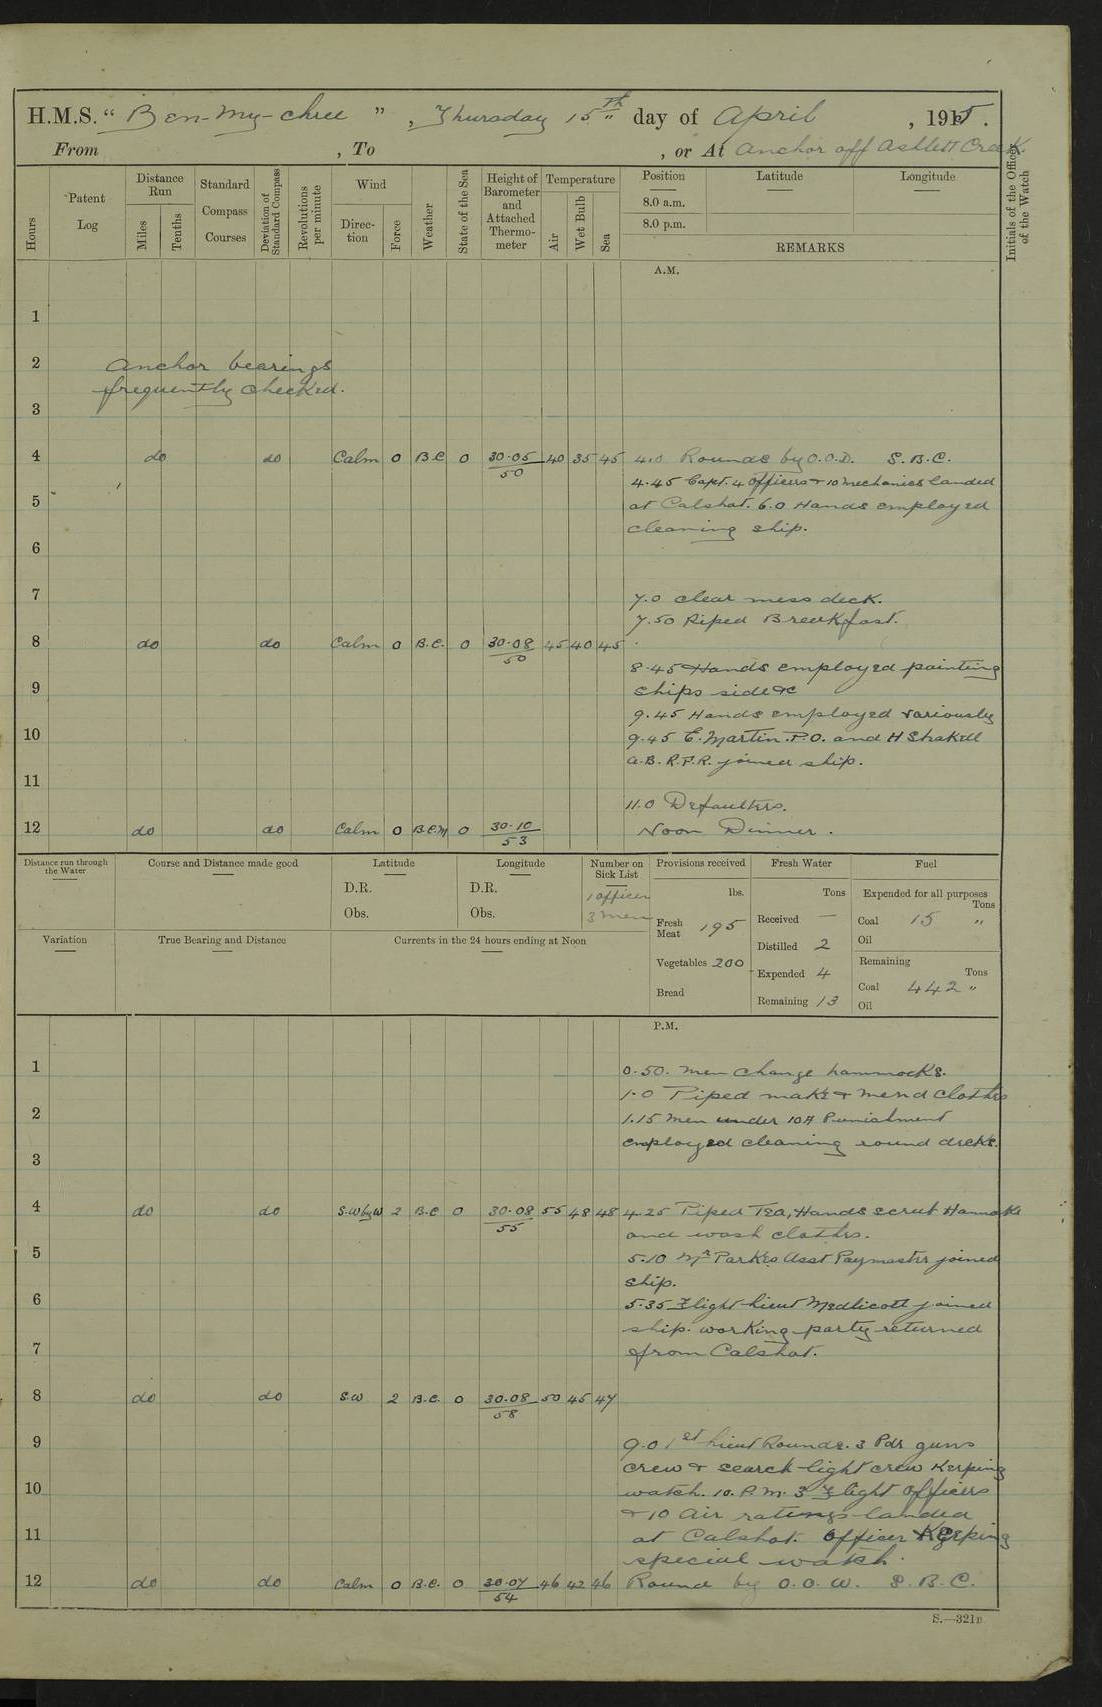 H.M.S. " Ben-my-chree " , Thursday 15th day of April , 1915 .
From , To , or At Anchor off Ashlett Creek.
Hours
Patent Log
Distance Run
Miles
Tenths
Standard Compass Courses
Deviation of Standard Compass
Revolutions per minute
Wind
Direction
Force
Weather
State of the Sea
Height of Barometer and Attached Thermometer
Temperature
Air
Wet Bulb
Sea
Position
Latitude
Longitude
8.0 a.m.
8.0 p.m.
REMARKS
Initials of the Officer of the Watch
A.M.
1
2 Anchor bearings
frequently checked.
3
4 do do Calm 0 B.C 0 30.05 40 35 45 4.0 Rounds by O.O.D. S.B.C.
50
4.45 Capt. 4 officers + 10 mechanics landed
5 at Calshot. 6.0 Hands employed
cleaning ship.
6
7 7.0 Clear mess deck.
7.50 Piped Breakfast.
8 do do Calm 0 B.C. 0 30.08 45 40 45
50
8.45 Hands employed painting
9 ships side &c
9.45 Hands employed variously
10 9.45 E. Martin. P.O. and H
A.B. R.F.R. joined ship.
11
11.0 Defaulters.
12 do do Calm 0 B.C.M 0 30.10 Noon Dinner.
53
Distance run through the Water
Course and Distance made good
Latitude
D.R.
Obs.
Longitude
D.R.
Obs.
Number on Sick List
1 officer
3 men
Provisions received
lbs.
Fresh Meat 195
Vegetables 200
Bread
Fresh Water
Tons
Received —
Distilled 2
Expended 4
Remaining 13
Fuel
Expended for all purposes
Tons
Coal 15 "
Oil
Remaining
Tons
Coal 442 "
Oil
Variation
True Bearing and Distance
Currents in the 24 hours ending at Noon
P.M.
1 0.50. Men change hammocks.
1.0 Piped make + mend cloths
2 1.15 Men under 10A Punishment
employed cleaning round decks.
3
4 do do S.W by W 2 B.C 0 30.08 55 48 48 4.25 Piped Tea, Hands scrub Hamoks
55
and wash cloths.
5 5.10 Mr Parkes Asst Paymaster joined
ship.
6 5.35 Flight Lieut Medlicott joined
ship. working party returned
7 from Calshot.
8 do do S.W 2 B.C. 0 30.08 50 45 47
58
9 9.0 1st Lieut Rounds. 3 Pdr guns
crew + search-light crew Keeping
10 watch. 10. P.M. 3 Flight officers
+ 10 Air ratings landed
11 at Calshot. Officer Keeping
special watch.
12 do do Calm 0 B.C. 0 30.07 46 42 46 Round by O.O.W. S.B.C.
54
S.—321B